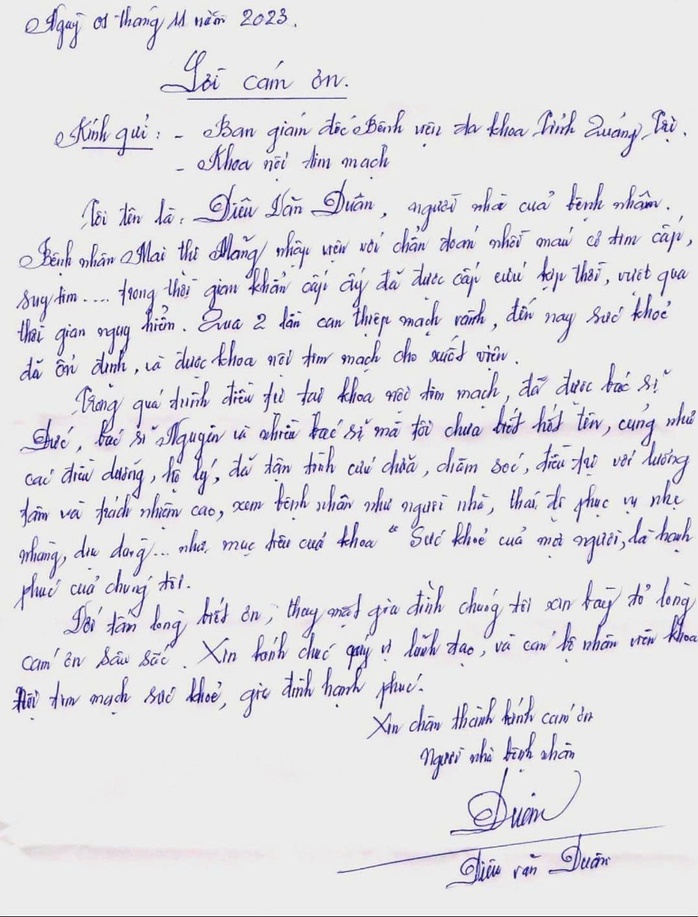 Ngày 01 tháng 11 năm 2023.
Lời cảm ơn.
Kính gửi: - Ban giám đốc Bệnh viện đa khoa Tỉnh Quảng Trị.
- Khoa nội tim mạch
Tôi tên là: Diêu Văn Duân, người nhà của bệnh nhân.
Bệnh nhân Mai Thị Mãng nhập viện với chẩn đoán nhồi máu cơ tim cấp,
suy tim.... trong thời gian khẩn cấp ấy đã được cấp cứu kịp thời, vượt qua
thời gian nguy hiểm. Qua 2 lần can thiệp mạch vành, đến nay sức khoẻ
đã ổn định, và được khoa nội tim mạch cho xuất viện.
Trong quá trình điều trị tại khoa nội tim mạch, đã được bác sĩ
Đức, bác sĩ Nguyên và nhiều bác sĩ mà tôi chưa biết hết tên, cũng như
các điều dưỡng, hộ lý, đã tận tình cứu chữa, chăm sóc, điều trị với lương
tâm và trách nhiệm cao, xem bệnh nhân như người nhà, thái độ phục vụ nhẹ
nhàng, dịu dàng... như mục tiêu của khoa "Sức khoẻ của mọi người, là hạnh
phúc của chúng tôi.
Với tấm lòng biết ơn, thay mặt gia đình chúng tôi xin bày tỏ lòng
cảm ơn sâu sắc. Xin kính chúc quý vị lãnh đạo, và cán bộ nhân viên khoa
Nội tim mạch sức khoẻ, gia đình hạnh phúc.
Xin chân thành kính cảm ơn
Người nhà bệnh nhân
Duân
Diêu văn Duân